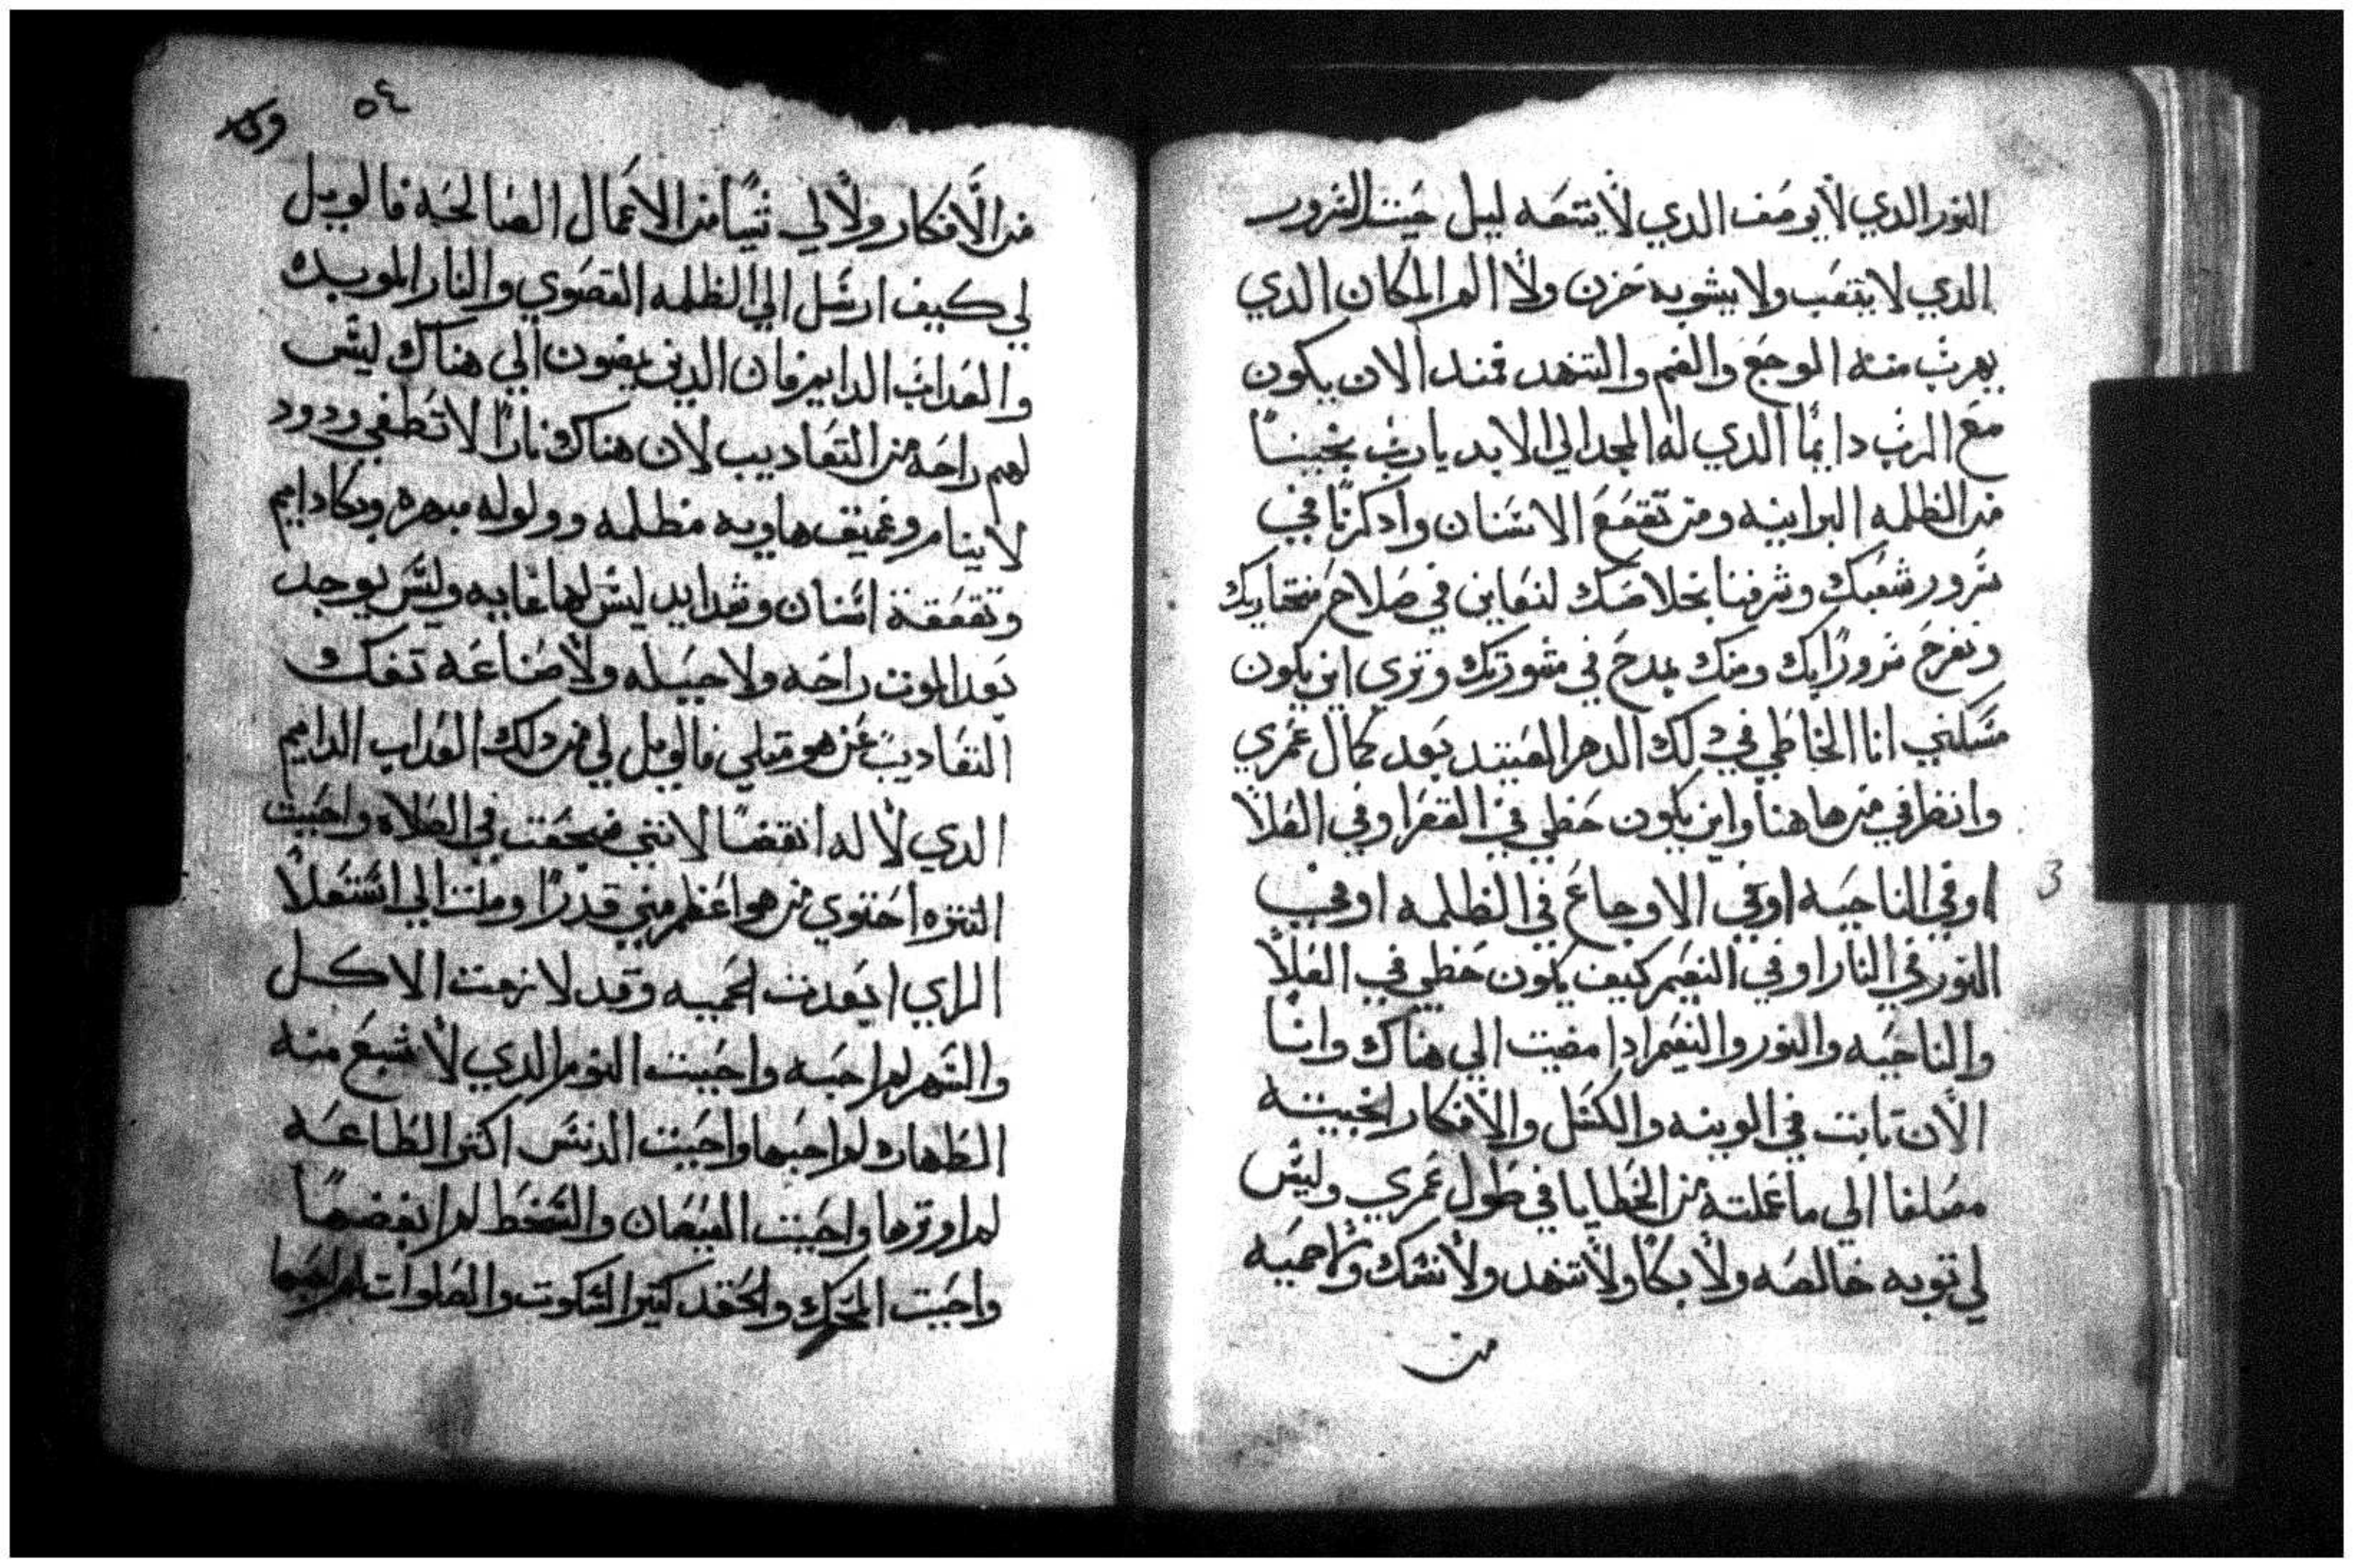 النور الدي لا يوصف الدي لا يتبعه ليل حيت السرور
الدي لا يتعب ولا يشوبه حزن ولا الم المكان الدي
يهرب منه الوجع والغم والتنهد فمند الان يكون
مع الرب دايمًا الدي له المجد الي الابد يا رب نجينا
من الظلمه البرانيه ومن تقعقع الاسنان وادكرنا في
سرور شعبك وشرفنا بخلاصك لنعاين في صلاح مختاريك
ونفرح سرورًا بك ومنك بمدح في مشورتك وتري اين يكون
مسكني انا الخاطي في دلك الدهر العتيد بعد كمال عمري
وانظرافي من هاهنا واين يكون حظي في القفرا وفي العلا
او في الناحيه او في الاوجاع في الظلمه او في
النور في النار او في النعيم كيف يكون حظي في العلا
والناحيه والنور والنعيم ادا مضيت الي هناك وانا
الان تابت في الونيه والكسل والافكار الخبيته
مضافا الي ما عملته من الخطايا في طول عمري وليس
لي توبه خالصه ولا بكا ولا تنهد ولا نسك ولا حميه
من
٥٤
من الافكار ولا لي شيا من الاعمال الصالحه فالويل
لي كيف ارسل الي الظلمه القصوي والنار الموبده
والعداب الدايم فان الدين يمضون الي هناك ليس
لهم راحه من التعاديب لان هناك نارًا لا تطفي ودود
لا ينام وعميق هاويه مظلمه وولوله مبهره وبكا دايم
وتقعقة اسنان وشدايد ليس لها غايه وليس يوجد
بعد الموت راحه ولا حيله ولا صناعه تفك و
التعاديب عن هو متلي فالويل لي من دلك العداب الدايم
الدي لا له انقضا لانني ضجعت في الصلاه واحبيت
التنزه احتوي من هو اعظم مني قدرًا وملت الي استعلا
الراي ابعدت الحميه وقد لازمت الاكل
والسهر لم احبه واحبيت النوم الدي لا شبع منه
الطهاره لم احبها واحبيت الدنس اكتر الطاعه
لم اوترها واحببت العيصان والسخط لم ابغضها
واحبيت المحك والحقد كتير السكوت والصلوات لم احبها